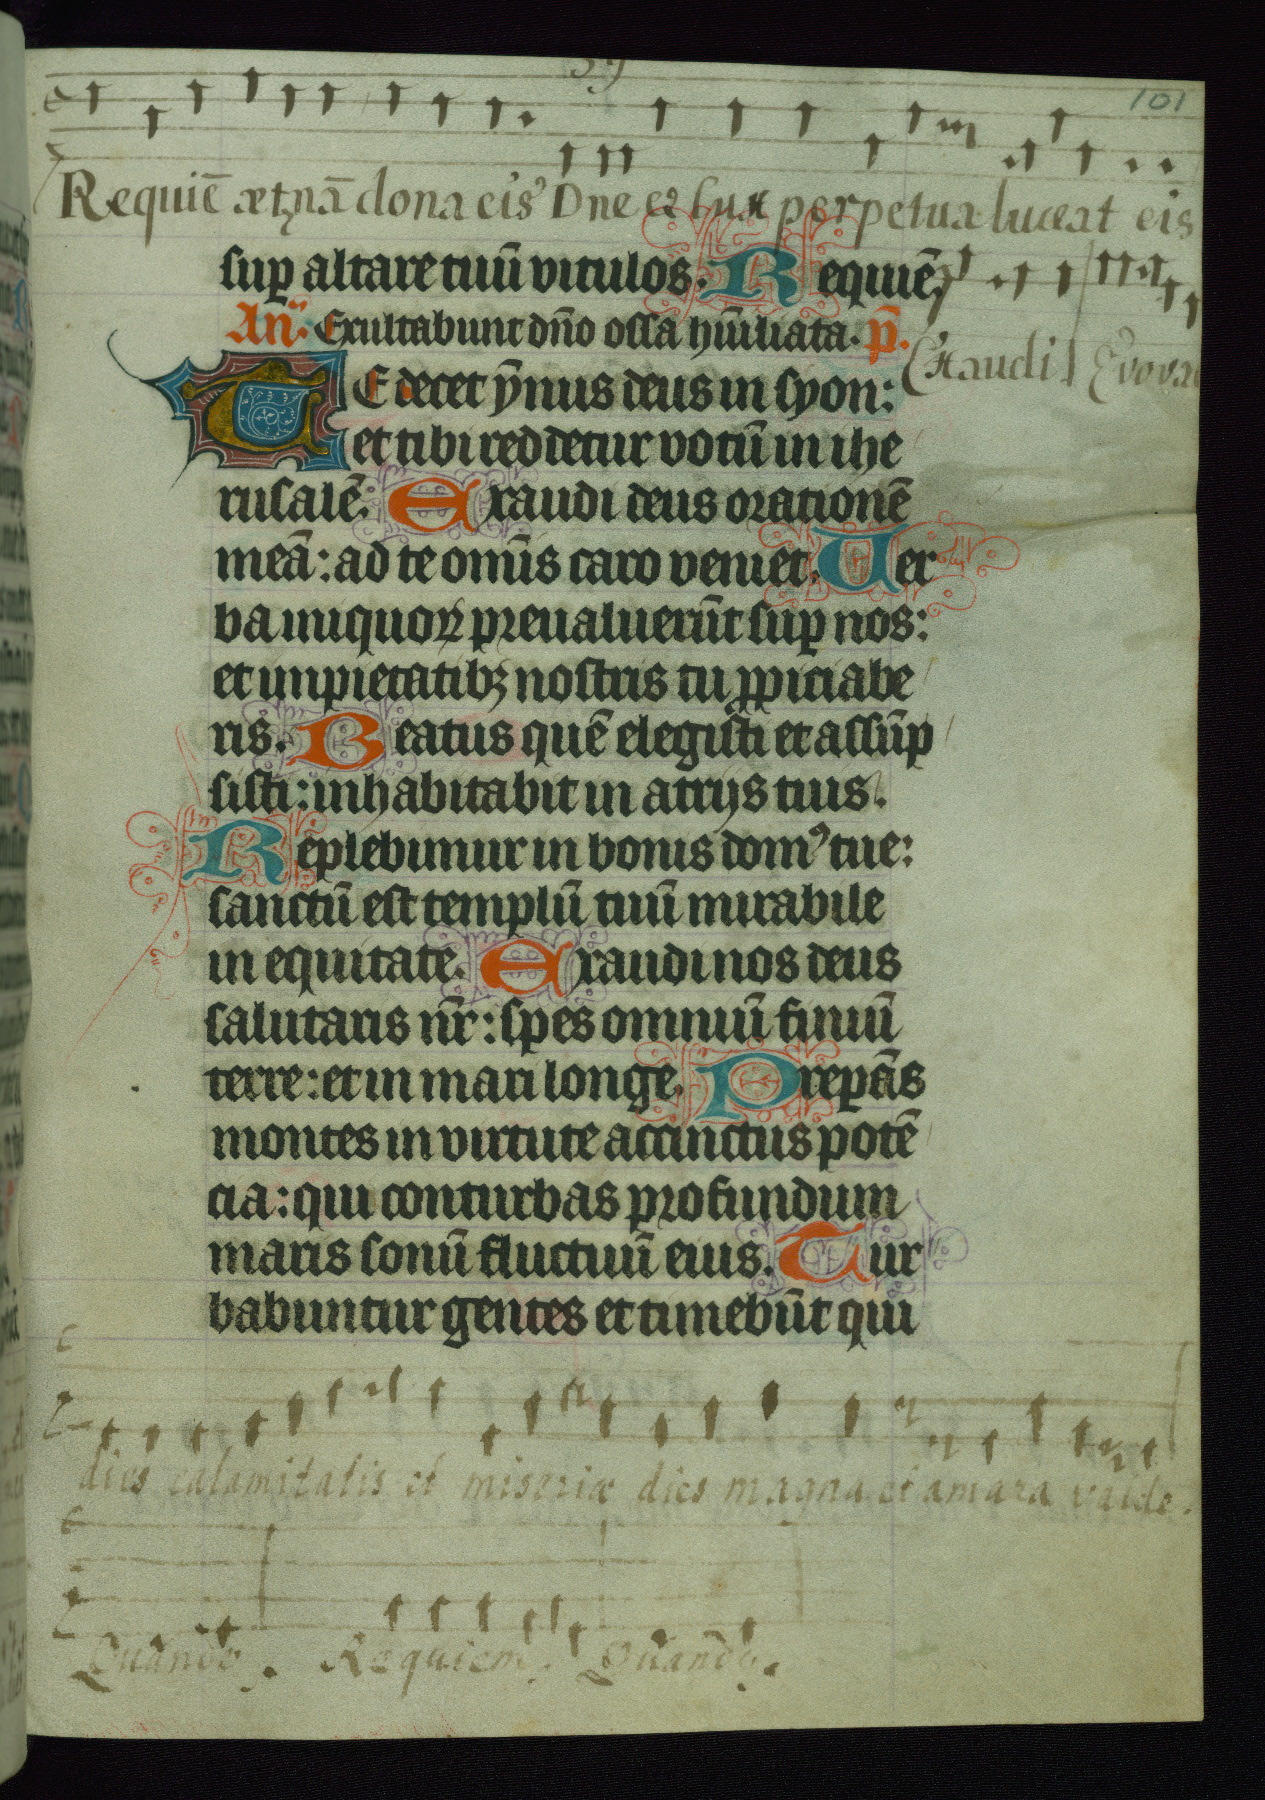 101
Requiē æt̨nā dona eis Dne et lux perpetua luceat eis
sup altare tuū vitulos. Requiē.
An̄. Exultabunt dn̄o ossa hūiliata. p̄.
(Exaudi) Evovae
Te decet ẏmnus deus in syon:
et tibi reddetur votū in ihe
rusalē. Exaudi deus orationē
meā: ad te omīs caro veniet. Uer
ba iniquoꝝ preualuerūt sup nos:
et impietatibꝫ nostris tu ꝓpiciabe
ris. Beatus quē elegisti et assūp
sisti: inhabitabit in atrijs tuis.
Replebimur in bonis domꝰ tue:
sanctū est templū tuū mirabile
in equitate. Exaudi nos deus
salutaris nr̄: spes omniū finiū
terre: et in mari longe. Prepās
montes in virtute accinctus potē
cia: qui conturbas profundum
maris sonū fluctuū eius. Tur
babuntur gentes et timebūt qui
dies calamitatis et miseriæ dies magna et amara valde.
Quando. Requiem. Quando.